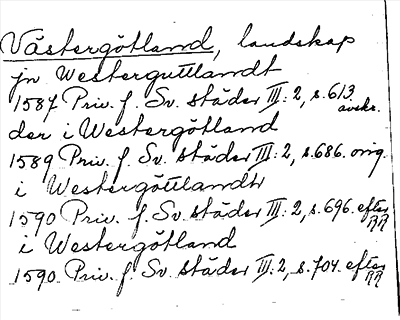 Västergötland, landskap
jn Westerguttlandt
1587 Priv. f. Sv. städer III:2, s.613 avskr.
der i Westergötland
1589 Priv. f. Sv. städer III:2, s.686. orig.
i Westergöttlandtt
1590 Priv. f. Sv. städer III:2, s.696. efter RR
i Westergötland
1590 Priv. f. Sv. städer III:2, s.704. efter RR